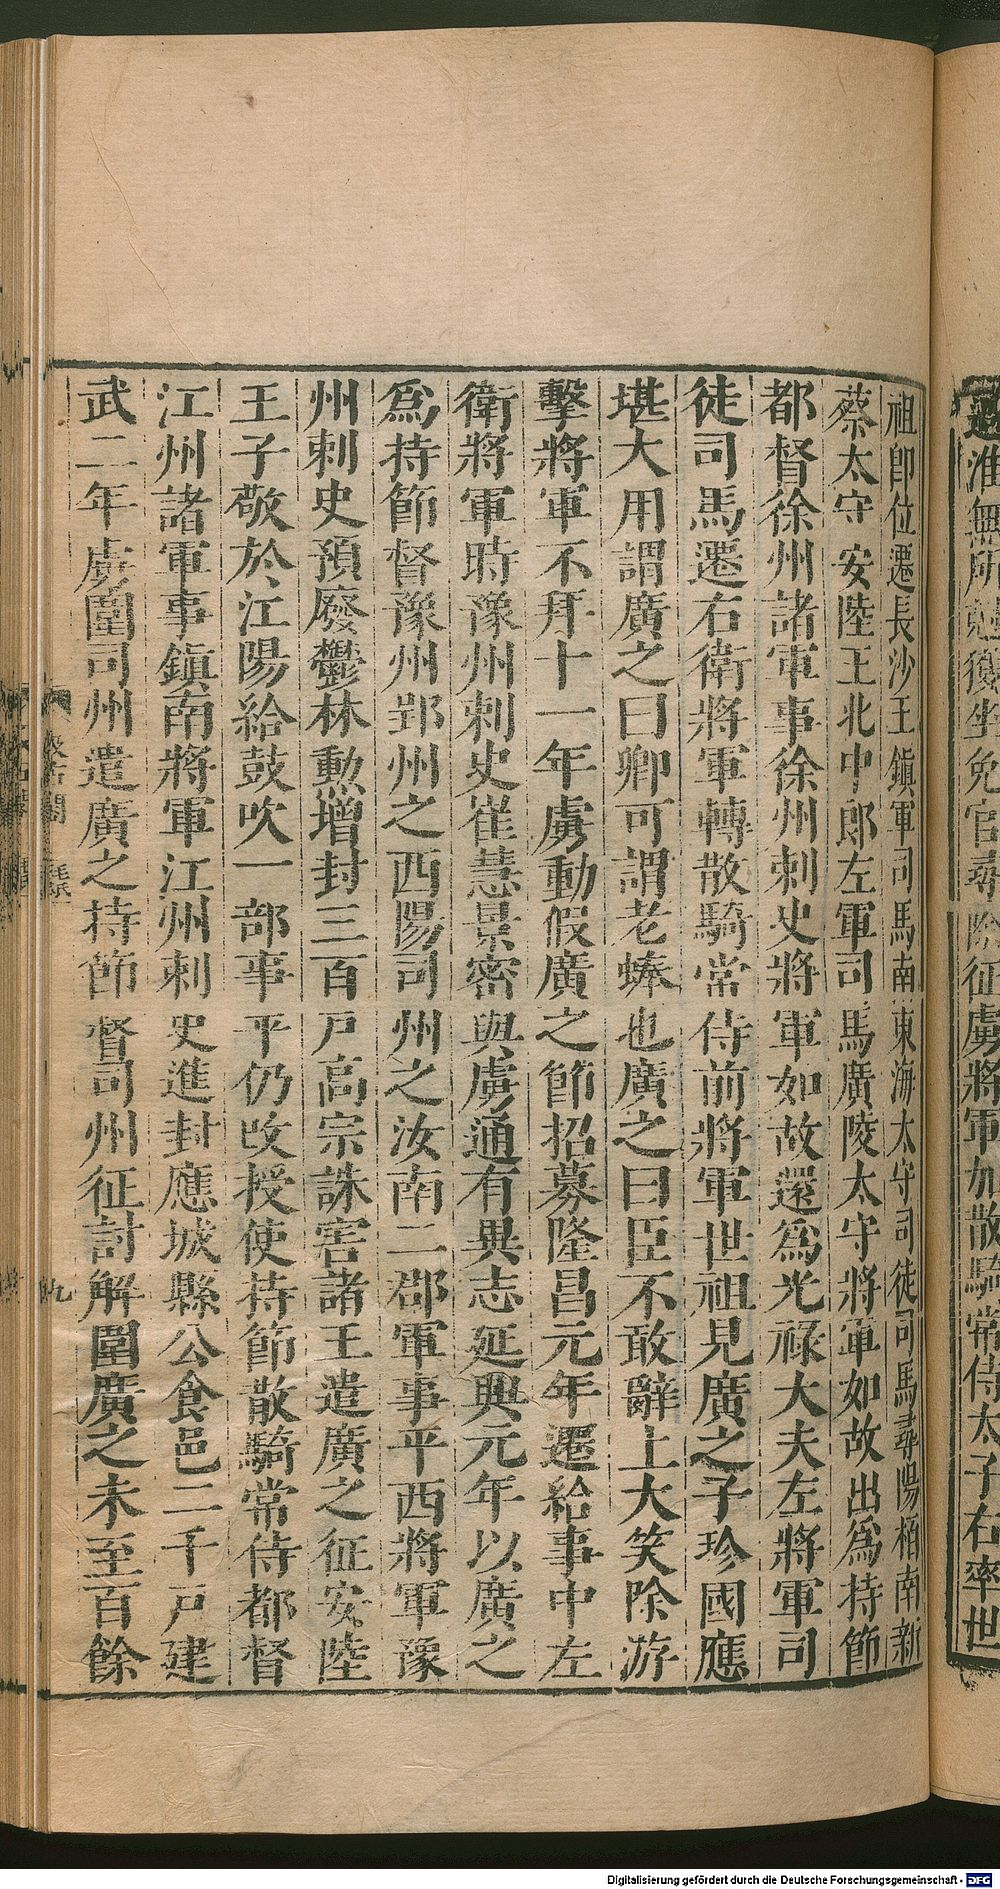 過淮無所尅獲坐免官尋除征虜將軍加散騎常侍太子右率世
祖卽位遷長沙王鎮軍司馬南東海太守司徒司馬尋陽相南新
蔡太守安陸王北中郎左軍司馬廣陵太守將軍如故出爲持節
都督徐州諸軍事徐州刺史將軍如故還爲光祿大夫左將軍司
徒司馬遷右衛將軍轉散騎常侍前將軍世祖見廣之子珍國應
堪大用謂廣之曰卿可謂老蜯也廣之曰臣不敢辭上大笑除游
擊將軍不拜十一年虜動假廣之節招募隆昌元年遷給事中左
衛將軍時豫州刺史崔慧景密與虜通有異志延興元年以廣之
爲持節督豫州郢州之西陽司州之汝南二郡軍事平西將軍豫
州刺史預廢鬱林勲增封三百戸高宗誅害諸王遣廣之征安陸
王子敬於江陽給鼓吹一部事平仍改授使持節散騎常侍都督
江州諸軍事鎮南將軍江州刺史進封應城縣公食邑二千戸建
武二年虜圍司州遣廣之持節督司州征討解圍廣之未至百餘
汲古閣
毛氏
九
Digitalisierung gefördert durch die Deutsche Forschungsgemeinschaft - DFG